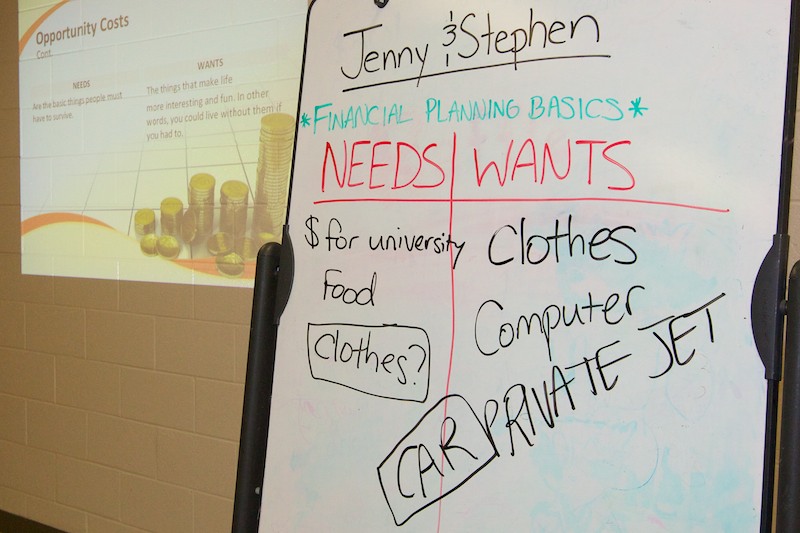 Opportunity Costs
Cont.
NEEDS
Are the basic things people must
have to survive.
WANTS
The things that make life
more interesting and fun. In other
words, you could live without them if
you had to.
Jenny & Stephen
*FINANCIAL PLANNING BASICS*
NEEDS WANTS
$ for university
Food
Clothes?
Clothes
Computer
CAR
PRIVATE JET